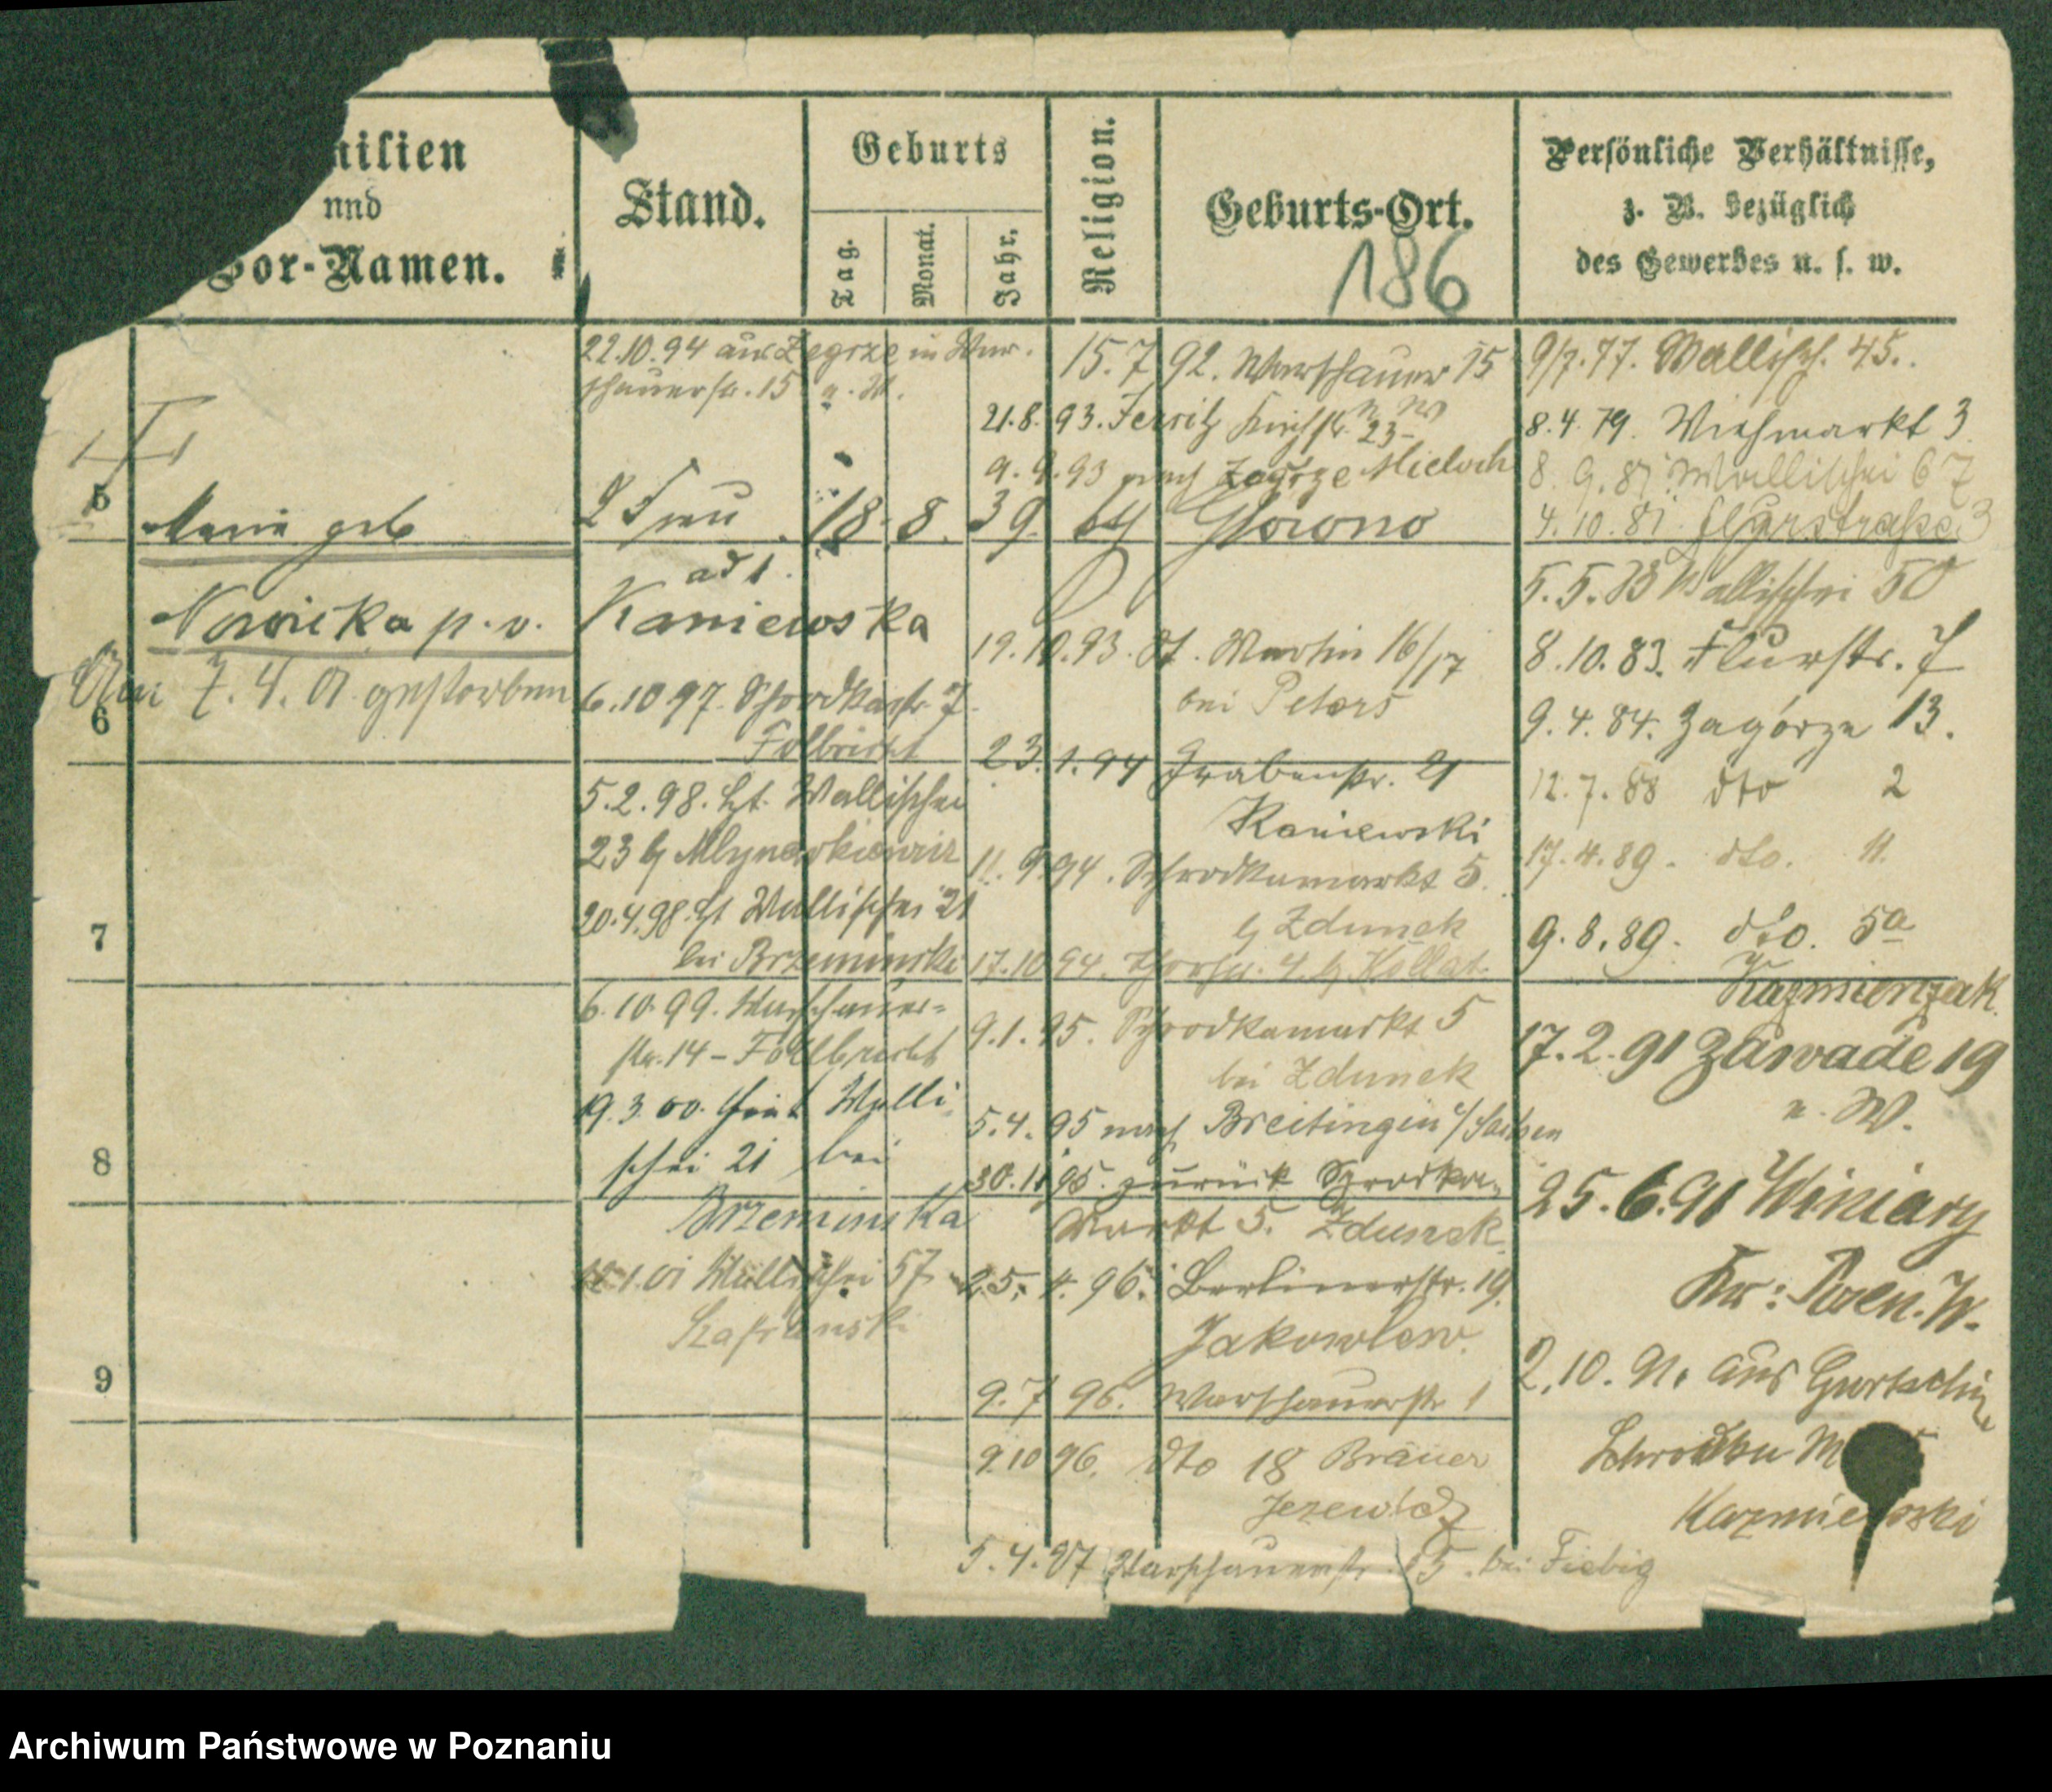 nilien
und
Vor-Namen.
Stand.
Geburts
Tag.
Monat.
Jahr.
Religion.
Geburts-Ort.
Persönliche Verhältnisse,
z. B. bezüglich
des Gewerbes u. s. w.
186
5
Maria geb
Nowicka p. v.
7. 4. 01 gestorben
6
7
8
9
22.10.94 aus Zegrze in War-
schauerstr. 15 n. W.
2 Frau
18. 8. 39.
ad 1.
Kaniewska
6.10 97. Schrodkastr. 7.
Follbrecht
5.2.98. Wallischei
23 b/ Mlynarkiewicz
20.4.98. Wallischei 21
bei Brzeminski
6.10.99. Warschauer-
str. 14 - Follbrecht
19.3.00. Walli
schei 21 bei
Brzeminska
1.01 Wallischei 57
Szafranski
15.7 92. Warschauer 15
21.8.93. Jersitz 23
9. 93 nach Zagórze Mieloch
Glowno
19.10.93. St. Martin 16/17
bei Peters
23.1.94 Grabenstr. 21
Kaniewski
11. 9 94. Schrodkamarkt 5.
b/ Zdunek
17.10 94. 4 b/ Kollat
9.1.95. Schrodkamarkt 5
bei Zdunek
5.4.95 nach Breitingen i/ Sachsen
30.11 95. zurück Schrodka-
Markt 5. Zdunek
25. 4. 96. Berlinerstr. 19.
Jakowlew.
9.7 96. Warschauerstr 1
9.10 96. dto 18 Bräuer
Jerzewicz
5.4.97 Warschauerstr. 15. bei Fiebig
9/7.77. Wallisch. 45.
8.4.79. Viehmarkt 3
8. 9. 81 Wallischei 67
4.10.81. Flurstraße 3
5.5.83 Wallischei 50
8.10.83. Flurstr. 7
9.4.84. Zagórze 13.
12.7.88 dto 2
17.4.89. dto. 11.
9.8.89. dto. 5a
Kazmierzak
17.2.91 Zawade 19
n. W.
25.6.91 Winiary
Kr: Posen. W.
2.10.91. aus Gurtschin
Schrodka M
Kazmierski
Archiwum Państwowe w Poznaniu